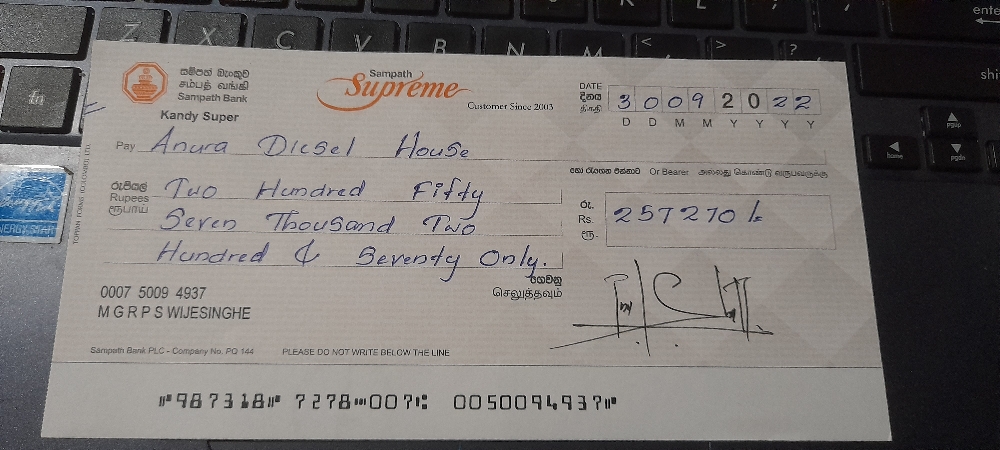 සම්පත් බැංකුව
சம்பத் வங்கி
Sampath Bank
Kandy Super
Sampath
Supreme
Customer Since 2003
DATE
දිනය
திகதி
3 0 0 9 2 0 2 2
D D M M Y Y Y Y
Pay Anura Diesel House
හෝ රැගෙන එන්නාට Or Bearer அல்லது கொண்டு வருபவருக்கு
රුපියල්
Rupees
ரூபாய்
Two Hundred Fifty
Seven Thousand Two
Hundred & Seventy Only.
රු.
Rs.
ரூ.
257270/=
ගෙවනු
செலுத்தவும்
0007 5009 4937
M G R P S WIJESINGHE
Sampath Bank PLC - Company No. PQ 144
PLEASE DO NOT WRITE BELOW THE LINE
⑈987318⑈ 7278⑉007⑆ 0050094937⑈
Z X C V B N M < > ?
fn
home
pgup
pgdn
ENERGY STAR